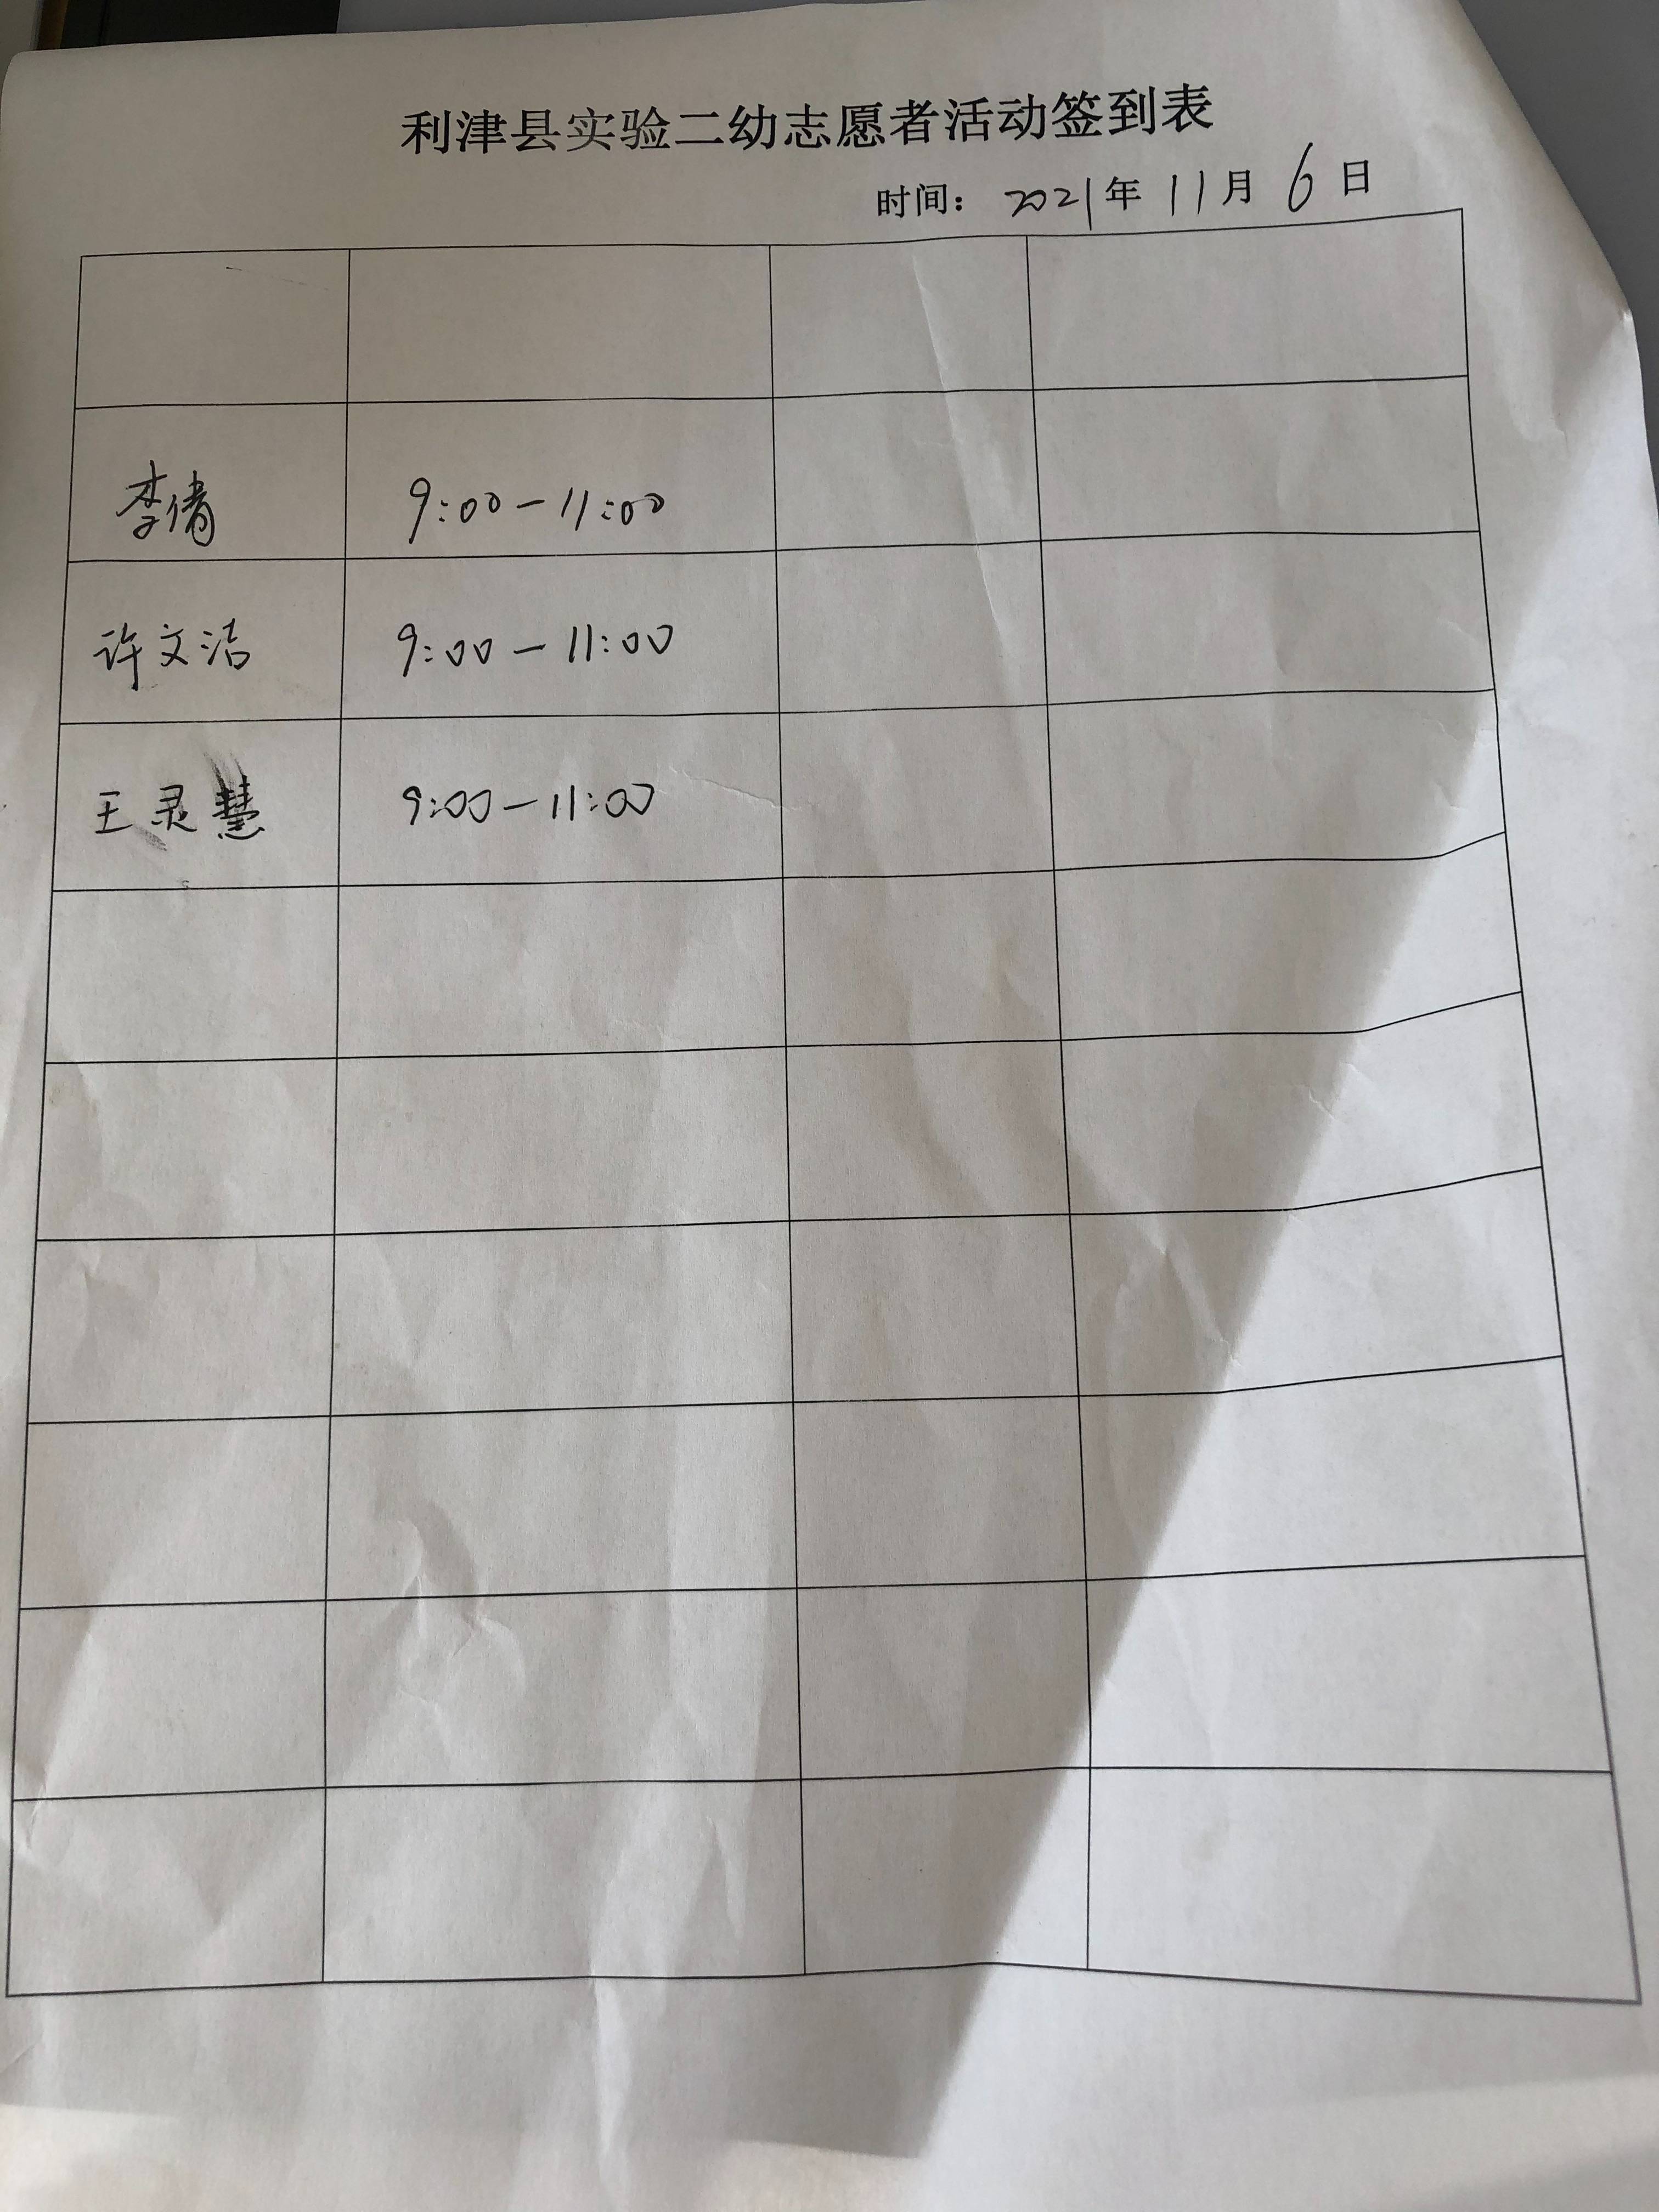 利津县实验二幼志愿者活动签到表
时间： 2021年 11月 6日
李倩 9:00-11:00
许文洁 9:00-11:00
王灵慧 9:00-11:00